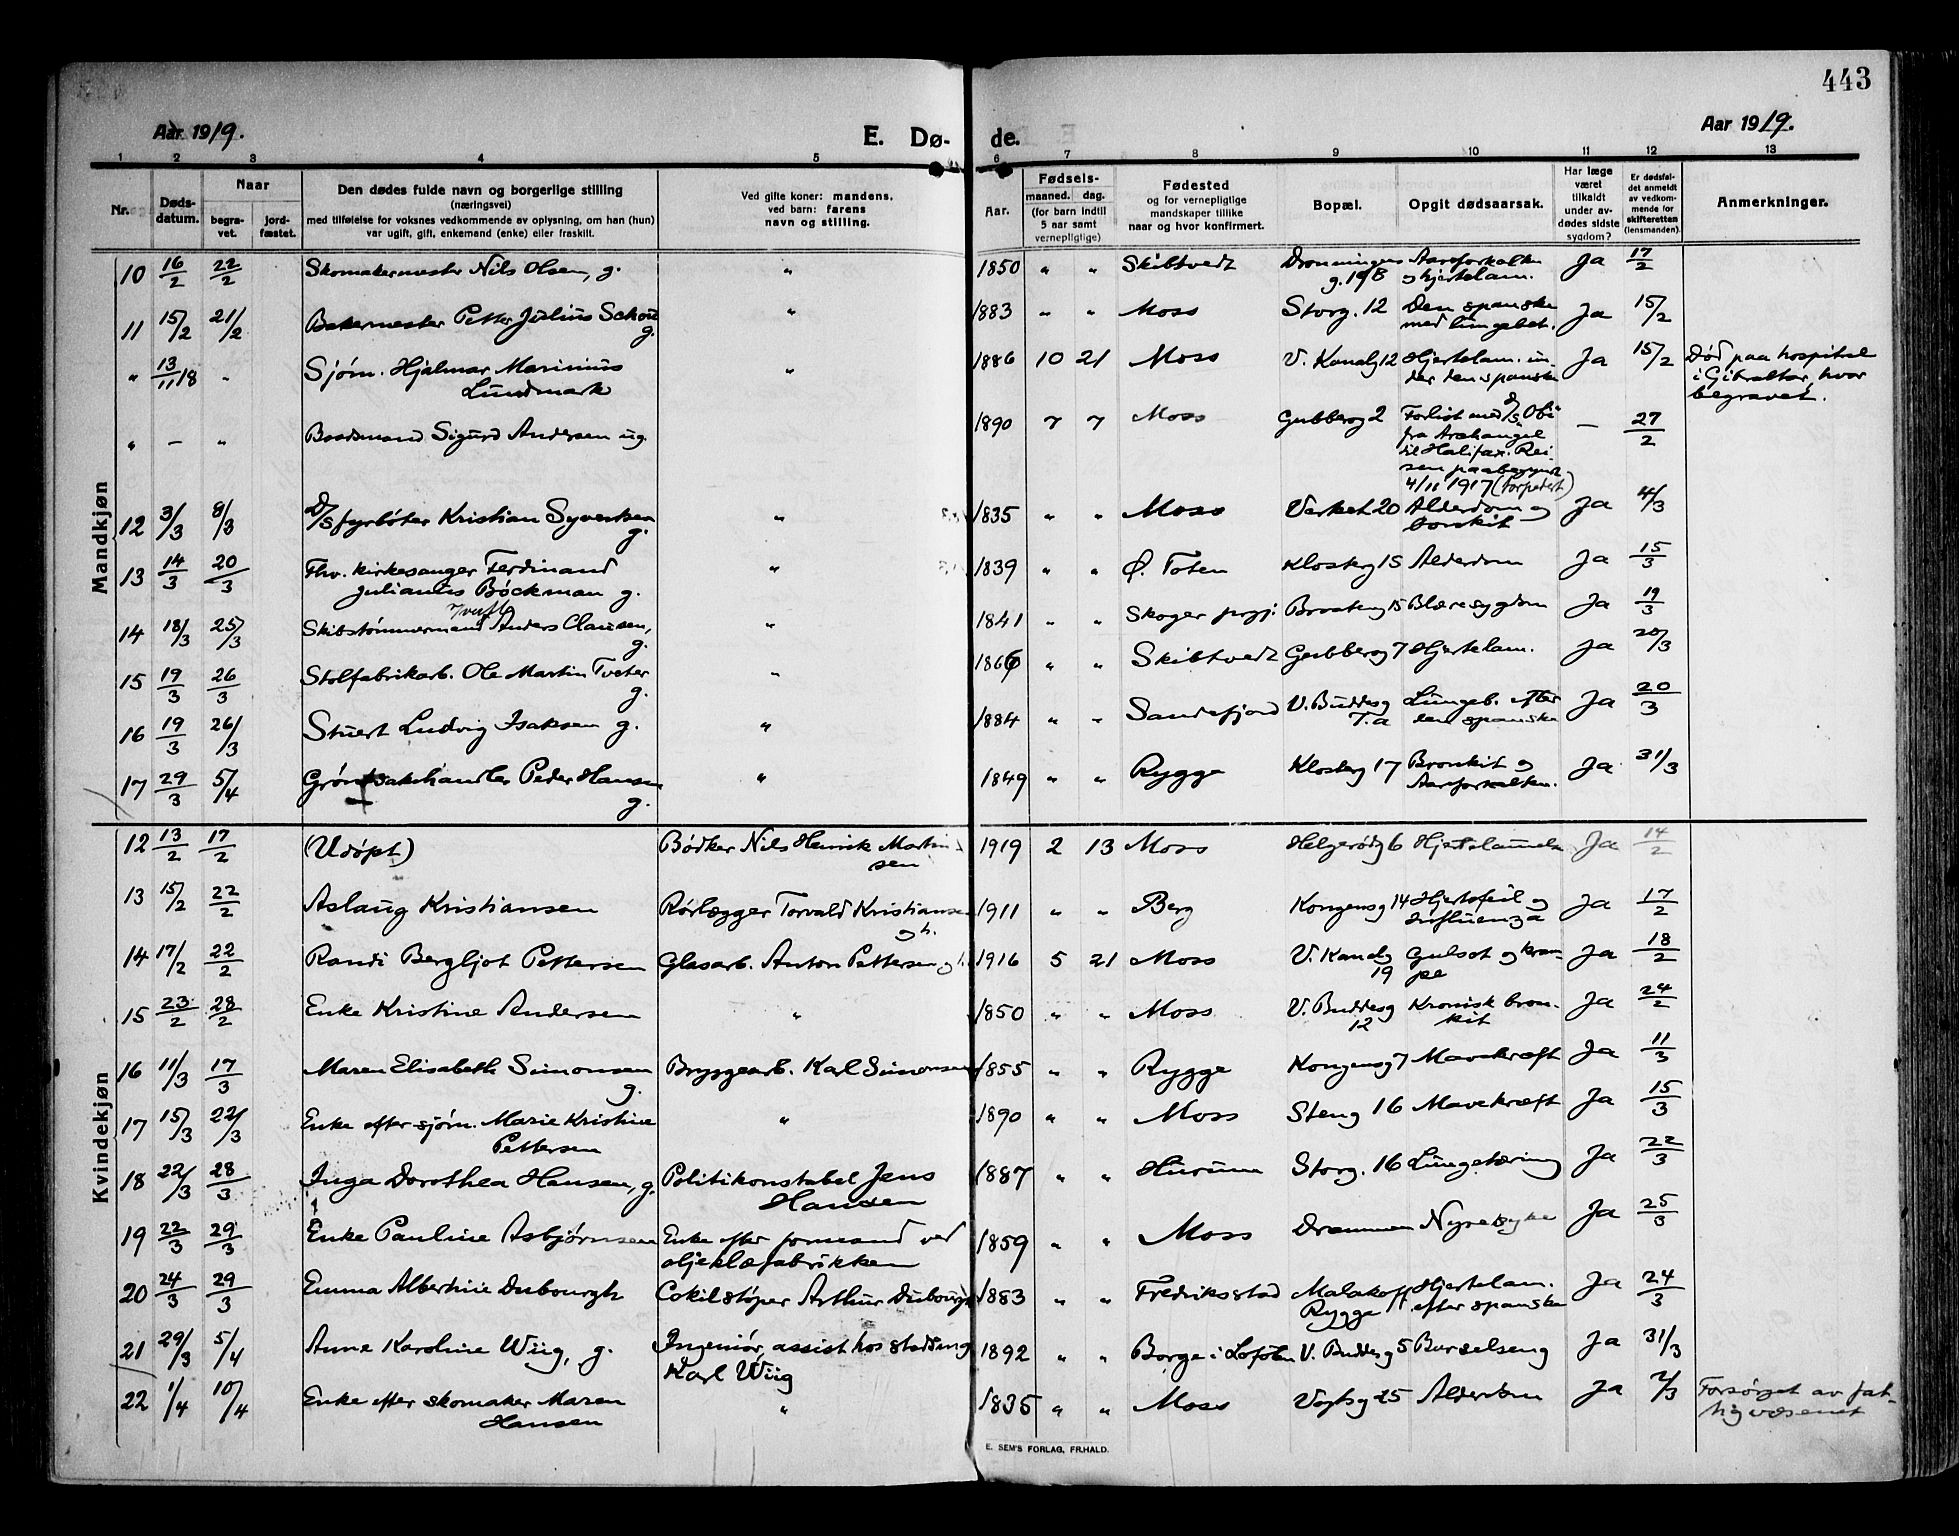 443
Aar 1919.
E. Dø-
de.
Aar 1919.
1 2 3 4 5 6 7 8 9 10 11 12 13
Nr.
Døds-
datum.
Naar
begra-
vet.
jord-
fæstet.
Den dødes fulde navn og borgerlige stilling
(næringsvei)
med tilføielse for voksnes vedkommende av oplysning, om han (hun)
var ugift, gift, enkemand (enke) eller fraskilt.
Ved gifte koner: mandens,
ved barn: farens
navn og stilling.
Aar.
Fødsels-
maaned. dag.
(for barn indtil
5 aar samt
vernepligtige)
Fødested
og for vernepligtige
mandskaper tillike
naar og hvor konfirmert.
Bopæl.
Opgit dødsaarsak.
Har læge
været
tilkaldt
under av-
dødes sidste
sygdom?
Er dødsfal-
det anmeldt
av vedkom-
mende for
skifteretten
(lensmanden).
Anmerkninger.
Mandkjøn
10 16/2 22/2 Skomakermester Nils Olsen, g. " 1850 " " Skibtvedt Dronningens g. 19B Aareforkalkn. og hjertelam. Ja 17/2
11 15/2 21/2 Bakermester Petter Julius Schou g. " 1883 " " Moss Storg. 12 Den spanske med lungebet. Ja 15/2
" 13/11 18 " Sjøm. Hjalmar Marinius Lundmark " 1886 10 21 Moss V. Kanalg 12 Hjertelam. un der den spanske Ja 15/2 Død paa hospital i Gibraltar, hvor begravet.
" - " Baadsmand Sigurd Andersen ug. 1890 7 7 Moss Gubberg 2 Forlist med D/S "Obi" fra Archangel til Halifax. Rei- sen paabegynt 4/11 1917 (torpedert) — 27/2
12 3/3 8/3 D/S fyrbøter Kristian Syvertsen g. " 1835 " " Moss Verket 20 Alderdom og bronkit Ja 4/3
13 14/3 20/3 Fhv. kirkesanger Ferdinand Julianus Bøckman g. " 1839 " " Ø. Toten Klosterg 15 Alderdom Ja 15/3
14 18/3 25/3 Skibstømmermand Anders Clausen, g. " 1841 " " Skoger prgj: 15 Blæresygdom Ja 19/3
15 19/3 26/3 Stolfabrikarb. Ole Martin Tveter g. " 1866 " " Skibtvedt Gubberg 7 Hjertelam. Ja 20/3
16 19/3 26/3 Stuert Ludvig Isaksen g. " 1884 " " Sandefjord V. Buddesg 7.a Lungeb. efter den spanske Ja 20/3
17 29/3 5/4 Grøntsakhandler Peder Hansen g. " 1849 " " Rygge Klosterg 17 Bronkit og Aareforkalkn. Ja 31/3
Kvindekjøn
12 13/2 17/2 (Udøpt) Bødker Nils Henrik Martin- sen 1919 2 13 Moss Helgerødg 6 Hjertelammelse Ja 14/2
13 15/2 22/2 Aslaug Kristiansen Rørlægger Torvald Kristiansen og h. 1911 " " Berg Kongensg 14 Hjertefeil og Influenza Ja 17/2
14 17/2 22/2 Randi Bergljot Pettersen Glasarb. Anton Pettersen og h. 1916 5 21 Moss V. Kanalg 19 Gulsot og kram- pe Ja 18/2
15 23/2 28/2 Enke Kristine Andersen " 1850 " " Moss V. Buddesg 12 Kronisk bron- kit Ja 24/2
16 11/3 17/3 Maren Elisabeth Simonsen g. Bryggearb. Karl Simonsen 1855 " " Rygge Kongensg 7 Mavekræft Ja 11/3
17 15/3 22/3 Enke efter sjøm. Marie Kristine Pettersen " 1890 " " Moss Steng 16 Mavekræft Ja 15/3
18 22/3 28/3 Inga Dorothea Hansen, g. Politikonstabel Jens Hansen 1887 " " Hurum Storg. 16 Lungetæring Ja 22/3
19 22/3 29/3 Enke Pauline Asbjørnsen Enke efter formand ved oljeklæfabrikken 1859 " " Moss Drammen Nyresyke Ja 25/3
20 24/3 29/3 Emma Albertine Dubourgh Cokilstøper Arthur Dubourgh 1883 " " Fredriksstad Malakoff Rygge Hjertelam. efter spanske Ja 24/3
21 29/3 5/4 Anne Karoline Wiig, g. Ingeniør, assist hos stadsing Karl Wiig 1892 " " Borge i Lofoten V. Buddesg 5 Barselseng Ja 31/3
22 1/4 10/4 Enke efter skomaker Maren Hansen " 1835 " " Moss Vogtsg 25 Alderdom Ja 2/3 Forsørget av fat- tigvæsenet
E. SEM'S FORLAG, FR.HALD.